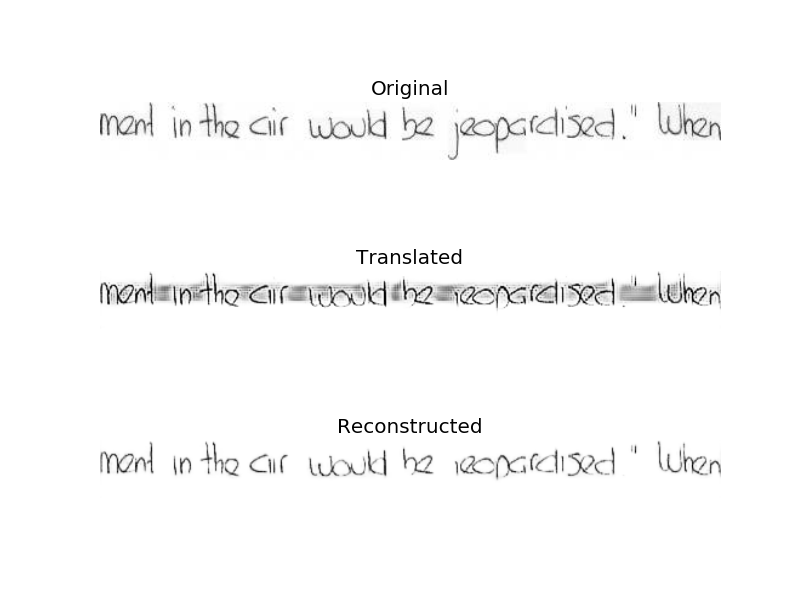 Original
ment in the air would be jeopardised." When
Translated
ment in the air would be jeopardised. " When
Reconstructed
ment in the air would be jeopardised " When